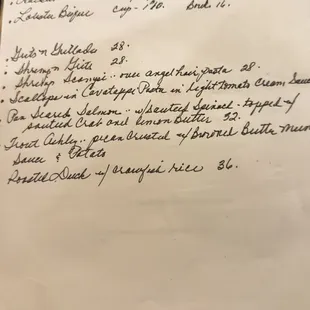 . Lobster Bisque cup - 7.90 Bowl 16.
. Grits n Grillades 28.
. Shrimp n Grits 28.
. Shrimp Scampi - over angel hair pasta 28.
. Scallops in Cavatappi Pasta in Light Tomato Cream Sauce
Pan Seared Salmon .. w/ Sauteed Spinach - topped w/
sauteed Crab and Lemon Butter 32.
Trout Ashley .. pecan Crusted w/
Sauce & Potato
Roasted Duck w/ crawfish rice 36.